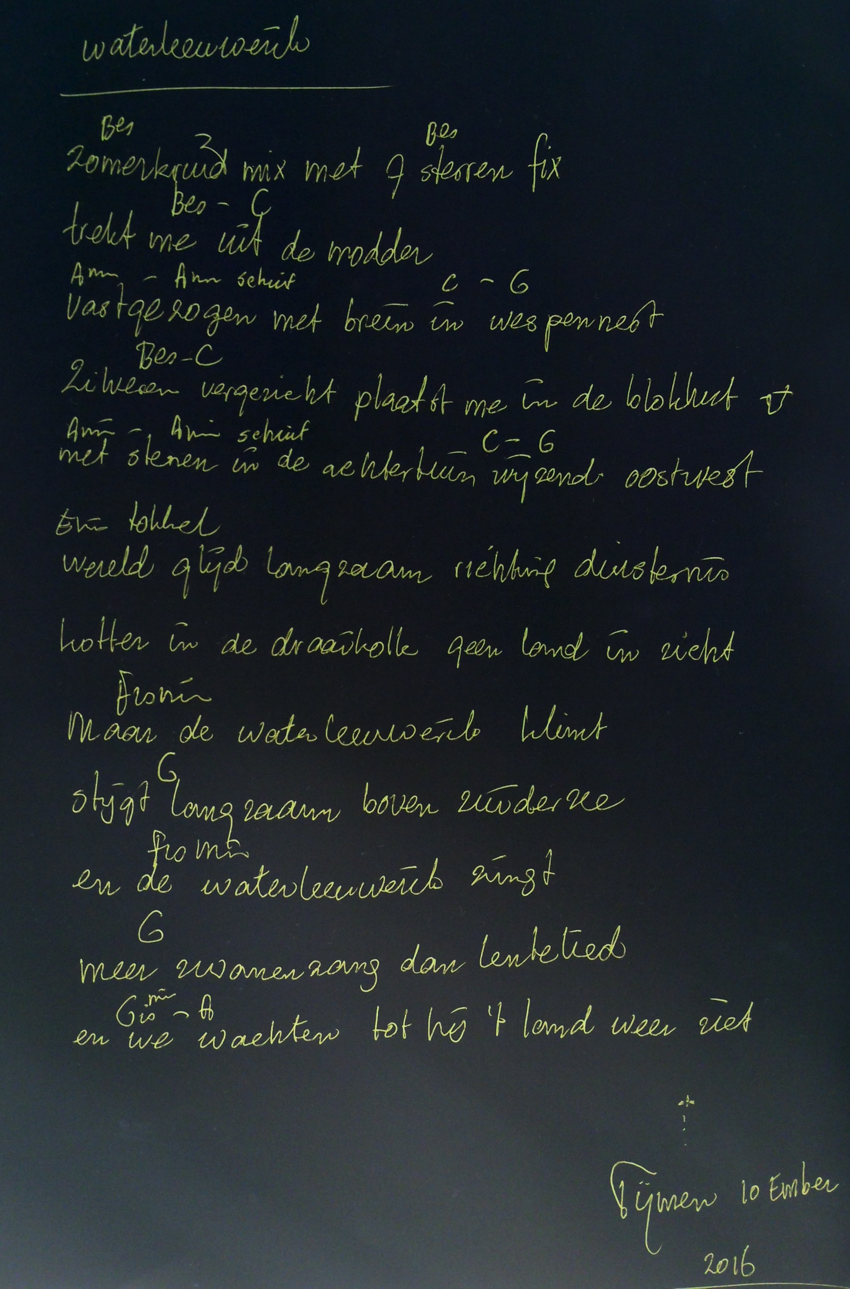 waterleeuwerik
Bes Bes
zomerkruid mix met 7 sterren fix
Bes - C
trekt me uit de modder
Am - Am schuif C - G
vastgezogen met brein in wespennest
Bes-C
vergezicht plaatst me in de blokhut
Am - Am schuif C - G
met stenen in de achtertuin wijzend oostwest
Em tokkel
wereld glijd langzaam richting duisternis
kotter in de draaikolk geen land in zicht
Fismin
Maar de waterleeuwerik klimt
G
stijgt langzaam boven zuiderzee
fismin
en de waterleeuwerik zingt
G
meer zwanenzang dan lentelied
Gis min - A
en we wachten tot hij 't land weer ziet
Tijmen 10 Ember
2016